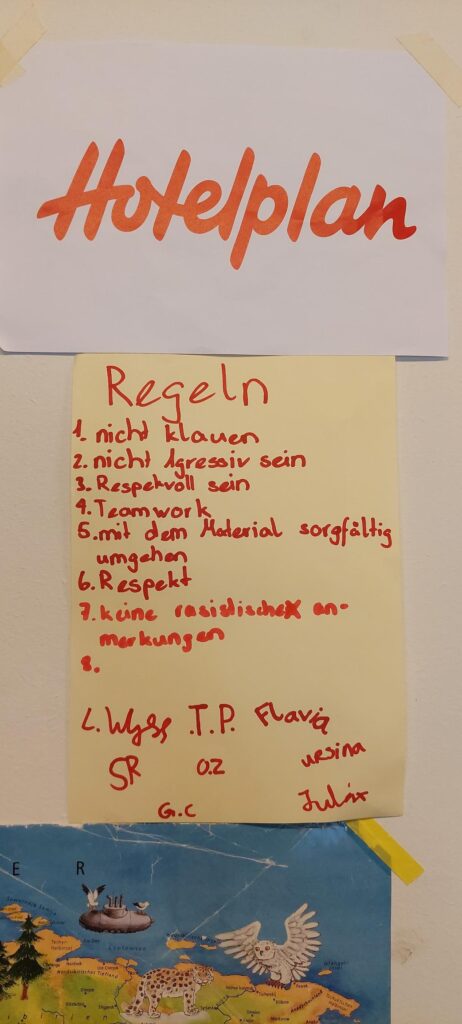 Hotelplan
Regeln
1. nicht klauen
2. nicht Agressiv sein
3. Respektvoll sein
4. Teamwork
5. mit dem Material sorgfältig
umgehen
6. Respekt
7. keine rasistische an-
merkungen
8.
L. Wyss T.P. Flavia
SR O.Z ursina
G.C
E R